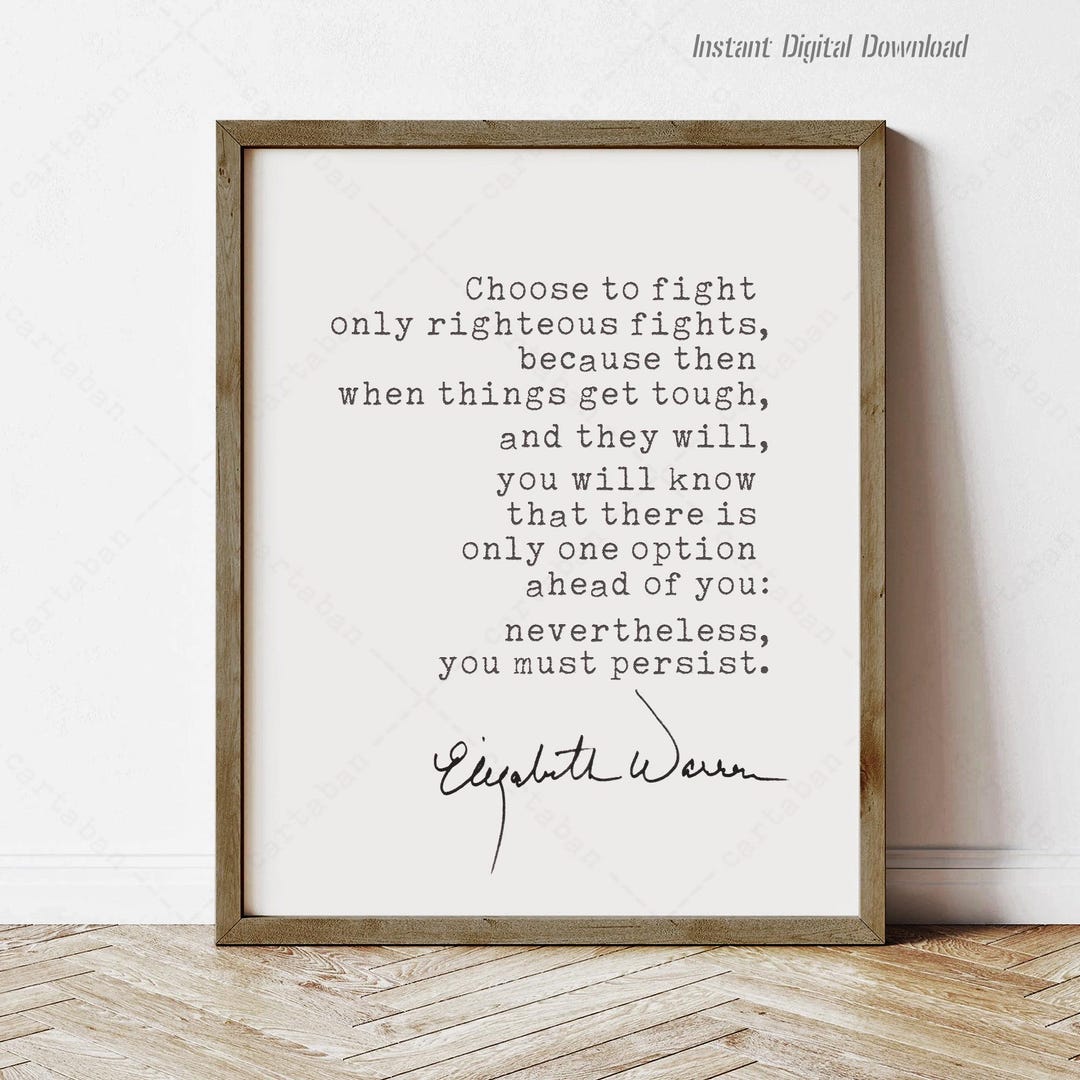 Instant Digital Download
Choose to fight
only righteous fights,
because then
when things get tough,
and they will,
you will know
that there is
only one option
ahead of you:
nevertheless,
you must persist.
Elizabeth Warren
cartaban